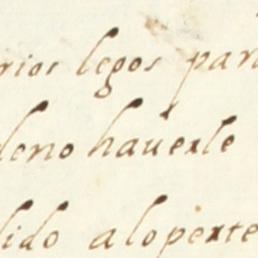 rios legos par
deno hauerle
dido aloperte